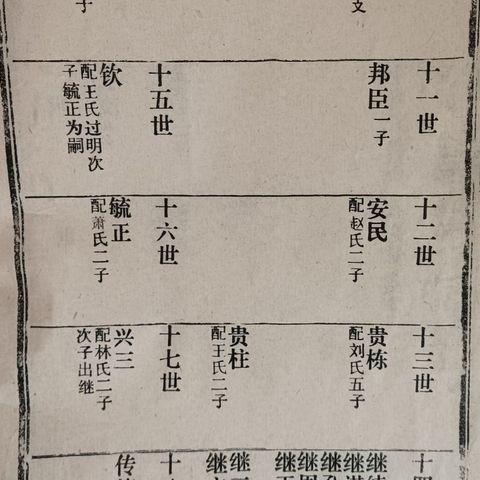 支
子
十一世
邦臣一子
十五世
钦
配王氏过明次
子毓正为嗣
十二世
安民
配赵氏二子
十六世
毓正
配萧氏二子
十三世
贵栋
配刘氏五子
贵柱
配王氏二子
十七世
兴三
配林氏二子
次子出继
十四
继
继
继
继
继
继
继
十
传